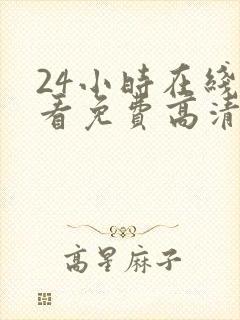 24小時在綫
看免費高清
高星麻子